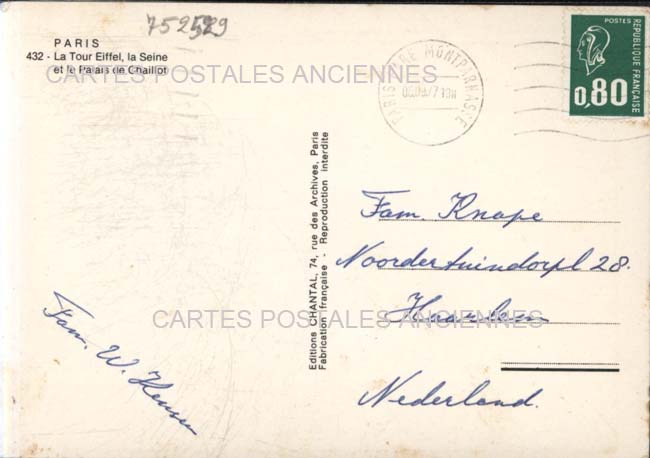 752529
PARIS
432 - La Tour Eiffel, la Seine
et le Palais de Chaillot
CARTES POSTALES ANCIENNES
PARIS GARE MONTPARNASSE
POSTES
REPUBLIQUE FRANÇAISE
0,80
Editions CHANTAL, 74, rue des Archives, Paris
Fabrication française - Reproduction interdite
Fam. Knape
Noordertuindorpl 28.
Haarlem
Nederland.
CARTES POSTALES ANCIENNES
Fam. W.